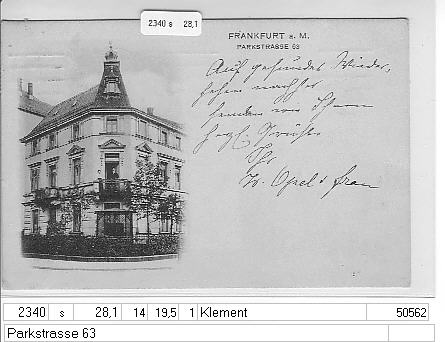 2340 s 28,1
FRANKFURT a. M.
PARKSTRASSE 63
Auf gesundes Wieder-
sehen nachher
senden wir Ihnen
hrzl. Grüße
Ihr
W. Opel & Frau
2340 s 28,1 14 19,5 1 Klement 50562
Parkstrasse 63